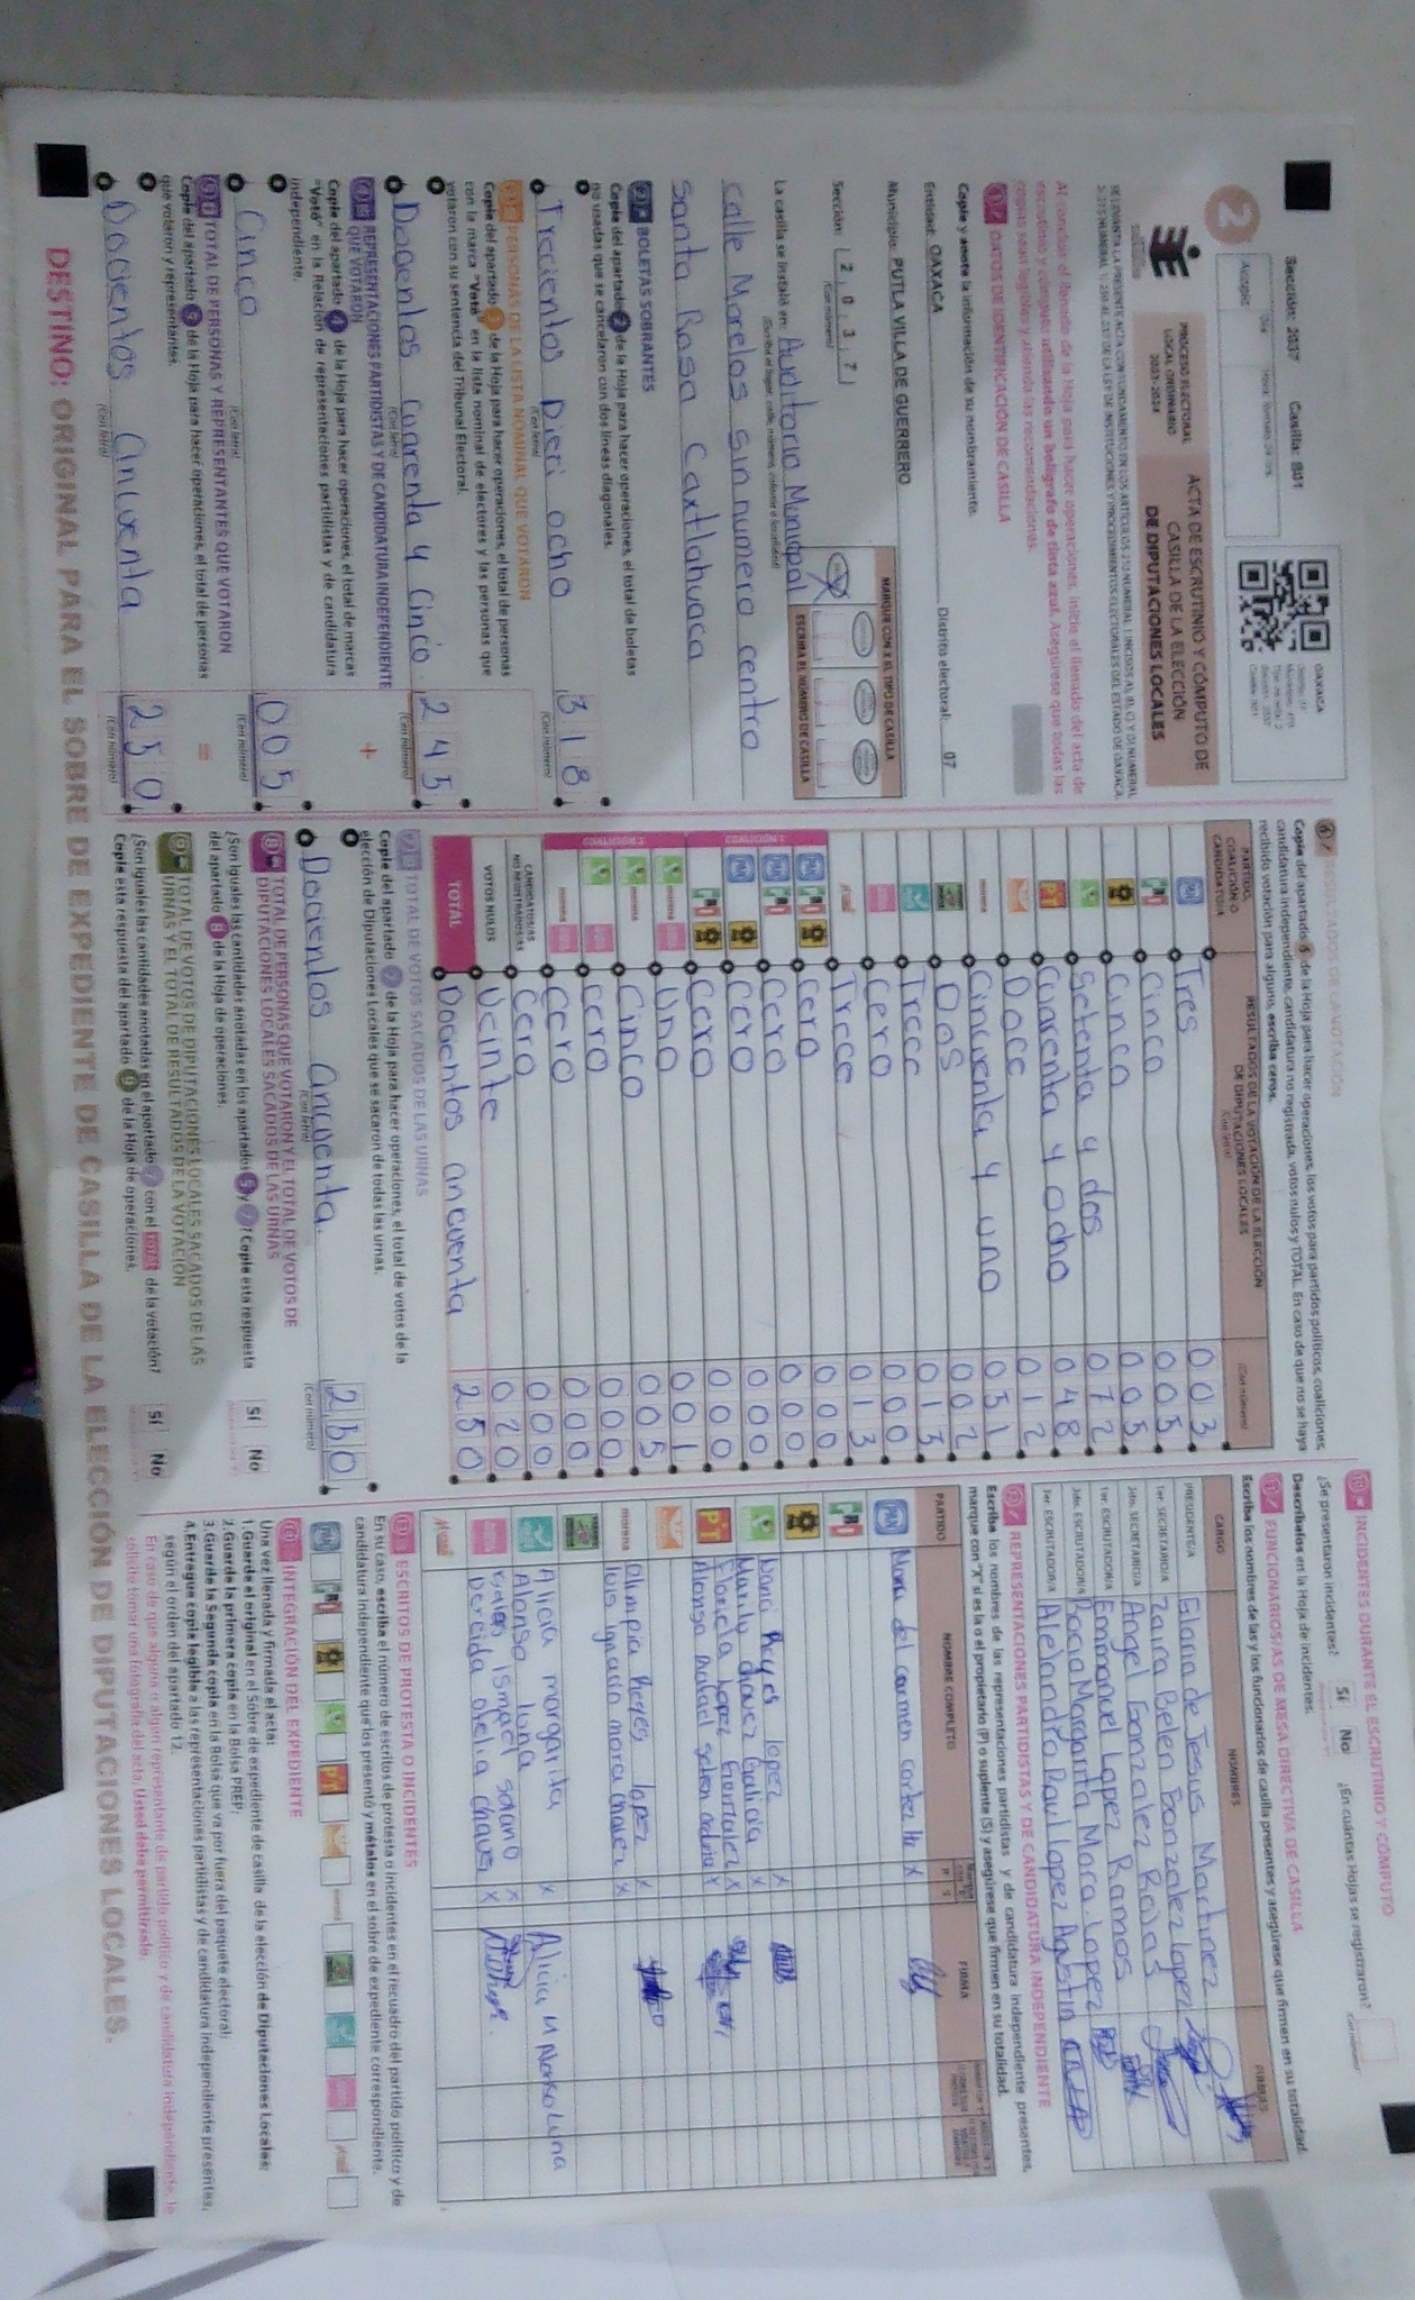 Sección: 2037 Casilla: B01
OAXACA
2
Acopio:
PROCESO ELECTORAL
LOCAL ORDINARIO
2023-2024
ACTA DE ESCRUTINIO Y CÓMPUTO DE
CASILLA DE LA ELECCIÓN
DE DIPUTACIONES LOCALES
Al concluir el llenado de la Hoja para hacer operaciones, inicie el llenado del acta de
escrutinio y cómputo utilizando un bolígrafo de tinta azul. Asegúrese que todas las
copias sean legibles y atienda las recomendaciones.
1 DATOS DE IDENTIFICACIÓN DE CASILLA
Copie y anote la información de su nombramiento.
Entidad: OAXACA Distrito electoral: 07
Municipio: PUTLA VILLA DE GUERRERO
MARQUE CON X EL TIPO DE CASILLA
Sección: 2 0 3 7
(Con número)
ESCRIBA EL NÚMERO DE CASILLA
La casilla se instaló en: Auditorio Municipal
Calle Morelos sin numero centro
Santa Rosa Caxtlahuaca
2 BOLETAS SOBRANTES
Copie del apartado 2 de la Hoja para hacer operaciones, el total de boletas
no usadas que se cancelaron con dos líneas diagonales.
Trecientos Dieci ocho 318
(Con letra) (Con número)
3 PERSONAS DE LA LISTA NOMINAL QUE VOTARON
Copie del apartado 3 de la Hoja para hacer operaciones, el total de personas
con la marca "Votó" en la lista nominal de electores y las personas que
votaron con su sentencia del Tribunal Electoral.
Docientos Cuarenta y Cincio 245
(Con letra) (Con número)
4 REPRESENTACIONES PARTIDISTAS Y DE CANDIDATURA INDEPENDIENTE
QUE VOTARON
+
Copie del apartado 4 de la Hoja para hacer operaciones, el total de marcas
"Votó" en la Relación de representaciones partidistas y de candidatura
independiente.
Cinco 005
(Con letra) (Con número)
5 TOTAL DE PERSONAS Y REPRESENTANTES QUE VOTARON
=
Copie del apartado 5 de la Hoja para hacer operaciones, el total de personas
que votaron y representantes.
Docientos Cincuenta 250
(Con letra) (Con número)
6 RESULTADOS DE LA VOTACIÓN
Copie del apartado 6 de la Hoja para hacer operaciones, los votos para partidos políticos, coaliciones,
candidatura independiente, candidatura no registrada, votos nulos y TOTAL. En caso de que no se haya
recibido votación para alguno, escriba ceros.
PARTIDO,
COALICIÓN O
CANDIDATURA
RESULTADOS DE LA VOTACIÓN DE LA ELECCIÓN
DE DIPUTACIONES LOCALES
(Con letra)
(Con número)
PAN Tres 003
PRI Cinco 005
Cinco 005
Setenta y dos 072
PT Cuarenta y ocho 048
Doce 012
morena Cincuenta y uno 051
Dos 002
Trece 013
Cero 000
Trece 013
PAN PRI Cero 000
PAN PRI Cero 000
PAN Cero 000
PRI Cero 000
morena Uno 001
morena Cinco 005
Cero 000
morena Cero 000
CANDIDATOS/AS
NO REGISTRADOS/AS Cero 000
VOTOS NULOS Veinte 020
TOTAL Docientos cincuenta 250
7 TOTAL DE VOTOS SACADOS DE LAS URNAS
Copie del apartado 7 de la Hoja para hacer operaciones, el total de votos de la
elección de Diputaciones Locales que se sacaron de todas las urnas.
Docientos cincuenta. 250
(Con letra) (Con número)
8 TOTAL DE PERSONAS QUE VOTARON Y EL TOTAL DE VOTOS DE
DIPUTACIONES LOCALES SACADOS DE LAS URNAS
¿Son iguales las cantidades anotadas en los apartados 5 y 7? Copie esta respuesta
del apartado 8 de la Hoja de operaciones. Sí No
9 TOTAL DE VOTOS DE DIPUTACIONES LOCALES SACADOS DE LAS
URNAS Y EL TOTAL DE RESULTADOS DE LA VOTACIÓN
¿Son iguales las cantidades anotadas en el apartado 7 con el TOTAL de la votación?
Copie esta respuesta del apartado 9 de la Hoja de operaciones. Sí No
10 INCIDENTES DURANTE EL ESCRUTINIO Y CÓMPUTO
¿Se presentaron incidentes? Sí No ¿En cuántas Hojas se registraron?
Descríbalos en la Hoja de incidentes.
11 FUNCIONARIOS/AS DE MESA DIRECTIVA DE CASILLA
Escriba los nombres de las y los funcionarios de casilla presentes y asegúrese que firmen en su totalidad.
CARGO NOMBRES FIRMAS
PRESIDENTE/A Gloria de Jesus Martinez
1er. SECRETARIO/A Zaira Belen Gonzalez lopez
2do. SECRETARIO/A Angel Gonzalez Rojas
1er. ESCRUTADOR/A Emmanuel Lopez Ramos
2do. ESCRUTADOR/A Rocio Margarita Mora Lopez
3er. ESCRUTADOR/A Alejandro Paul lopez Agustin
12 REPRESENTACIONES PARTIDISTAS Y DE CANDIDATURA INDEPENDIENTE
Escriba los nombres de las representaciones partidistas y de candidatura independiente presentes,
marque con "X" si es la o el propietario (P) o suplente (S) y asegúrese que firmen en su totalidad.
PARTIDO NOMBRE COMPLETO FIRMA
PAN Nora del carmen cortez X
PRI
Nanci Reyes lopez X
Marily chavez Galicia X
PT Floriela lopez Gonzalez X
Alonso X
morena olimpia Reyes lopez X
luis ignacio mora chavez X
Alicia margarita X
Alonso luna Alicia M Alonso Luna
ismael solano X
Dercida ofelia chavez X
13 ESCRITOS DE PROTESTA O INCIDENTES
En su caso, escriba el número de escritos de protesta o incidentes en el recuadro del partido político y de
candidatura independiente que los presentó y métalos en el sobre de expediente correspondiente.
PAN PRI PT
14 INTEGRACIÓN DEL EXPEDIENTE
Una vez llenada y firmada el acta:
1. Guarde el original en el Sobre de expediente de casilla de la elección de Diputaciones Locales;
2. Guarde la primera copia en la Bolsa PREP;
3. Guarde la Segunda copia en la Bolsa que va por fuera del paquete electoral;
4. Entregue copia legible a las representaciones partidistas y de candidatura independiente presentes,
según el orden del apartado 12.
En caso de que alguna o algún representante de partido político y de candidatura independiente le
solicite tomar una fotografía del acta. Usted debe permitírselo.
DESTINO: ORIGINAL PARA EL SOBRE DE EXPEDIENTE DE CASILLA DE LA ELECCIÓN DE DIPUTACIONES LOCALES.